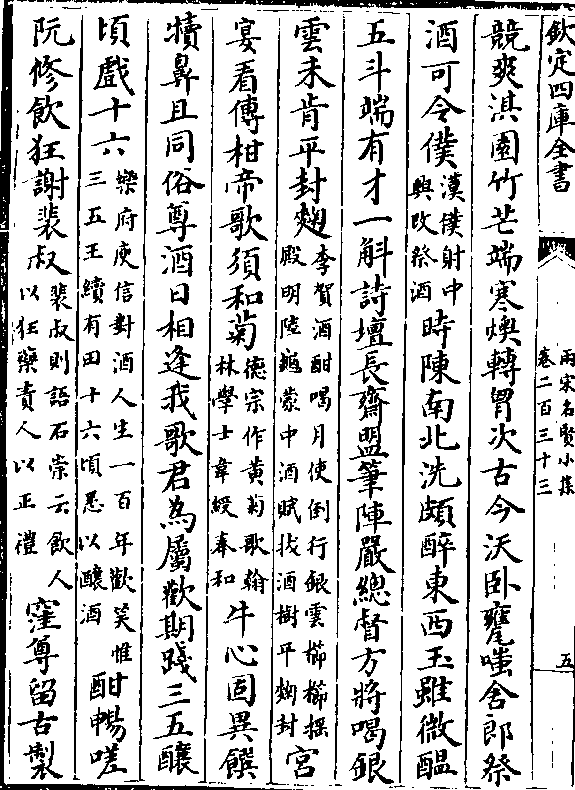 欽定四庫全書
兩宋名賢小集
卷二百三十三
五
競爽淇園竹芒端寒燠轉胃次古今沃卧甕嗤舍郎祭
酒可令僕漢僕射中興改祭酒時陳南北洗頗醉東西玉雖微醖
五斗端有才一斛詩壇長齋盟筆陣嚴總督方將喝銀
雲未肯平封麴李賀酒酣喝月使倒行銀雲櫛櫛揺殿明陸龜蒙中酒賦找酒樹平麴封宮
宴看傳柑帝歌須和菊德宗作黄菊歌翰林學士韋綬奉和牛心固異饌
犢鼻且同俗尊酒日相逢我歌君為屬歡期踐三五釀
頃戲十六樂府庾信對酒人生一百年歡笑惟三五王績有田十六頃悉以釀酒酣暢嗟
阮修飲狂謝裴叔裴叔則語石崇云飲人以狂藥責人以正禮窪尊留古製